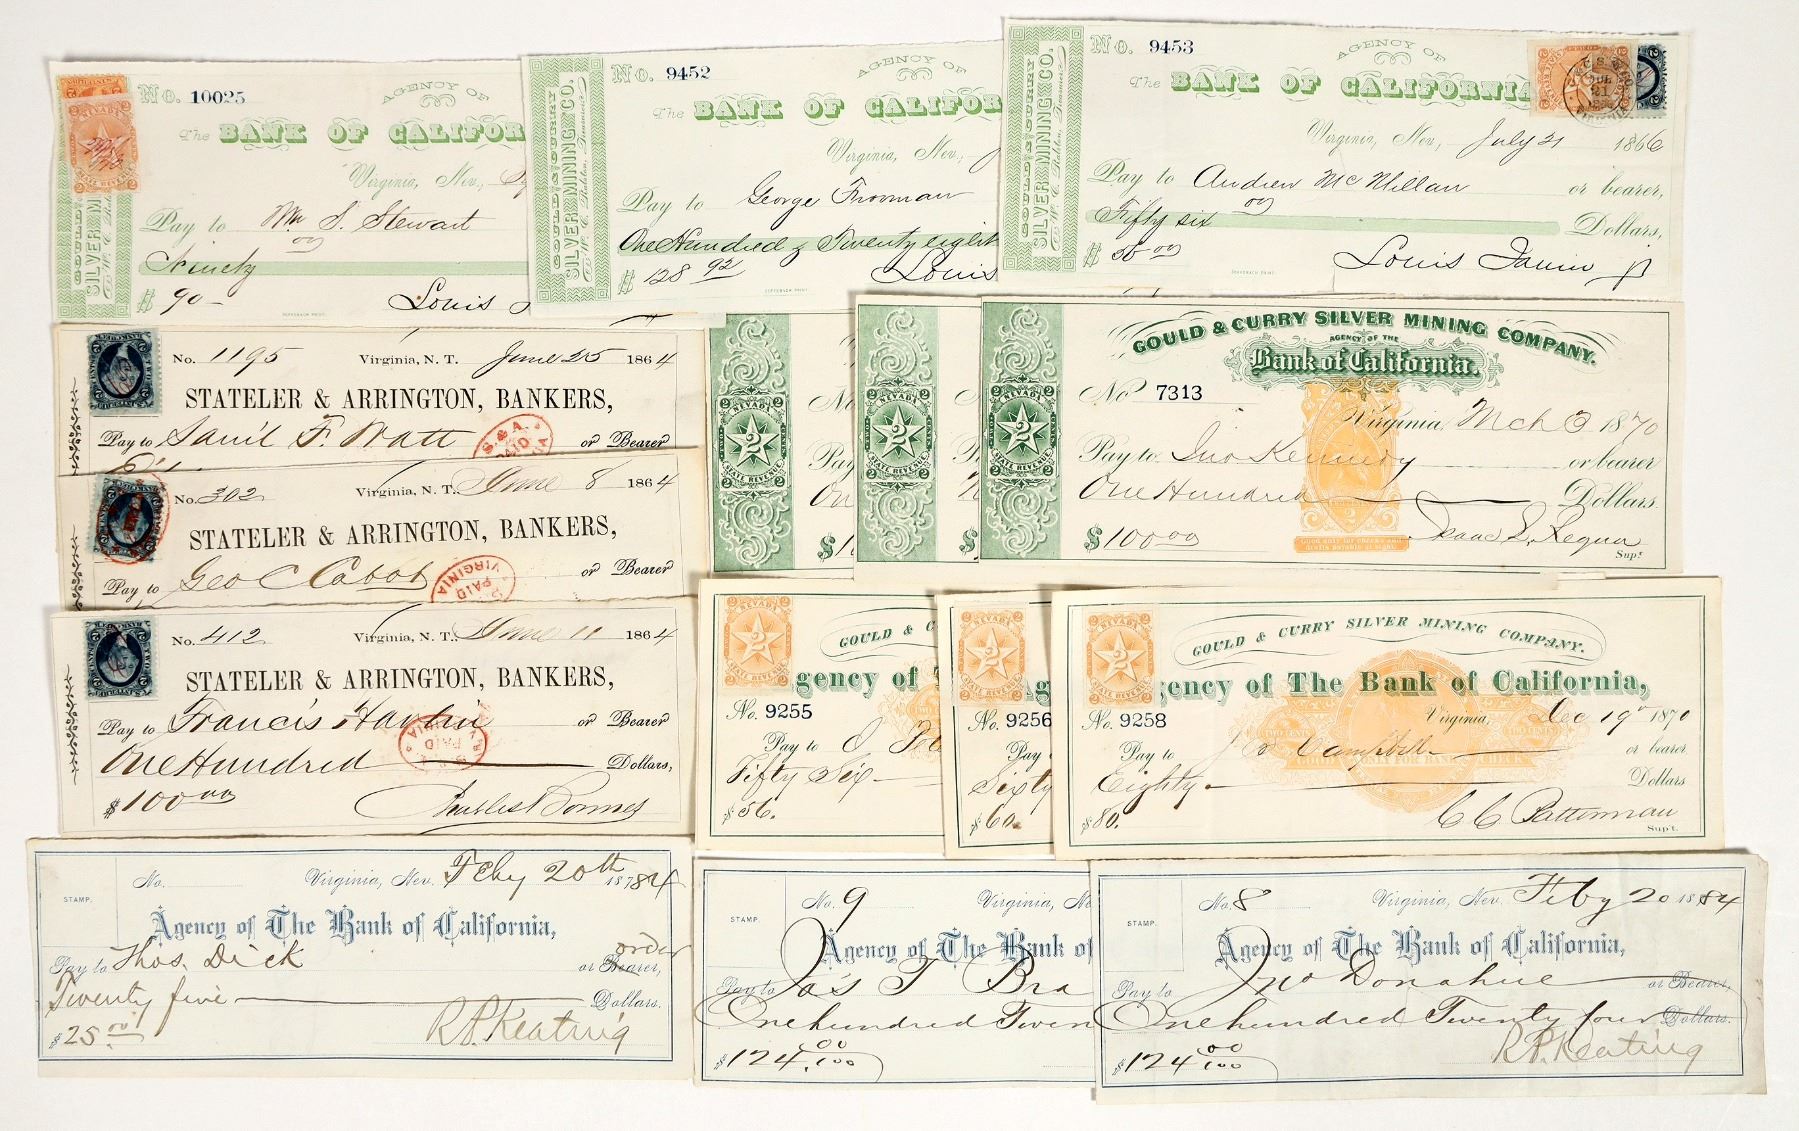 No. 10025
AGENCY OF
The BANK OF CALIFOR
Virginia, Nev.,
Pay to Wm S. Stewart
Ninety 00
$ 90 -
Louis
GOULD & CURRY
SILVER M
No. 9452
AGENCY OF
The BANK OF CALIFOR
Virginia, Nev., J
Pay to George Froman
One Hundred & Twenty eight
$ 128 92
Louis
GOULD & CURRY
SILVER MINING CO.
W. C. Ralston, Treasurer
No. 9453
AGENCY OF
The BANK OF CALIFORNIA
Virginia, Nev., July 21 1866
Pay to Andrew McMillan or bearer,
Fifty six 00 Dollars,
$ 56 00
Louis Janin Jr
GOULD & CURRY
SILVER MINING CO.
W. C. Ralston, Treasurer
JUL
21
No. 1195 Virginia, N. T. June 25 1864
STATELER & ARRINGTON, BANKERS,
Pay to Sam'l F. Watt or Bearer
S. & A.
PAID
No. 302 Virginia, N. T., June 8 1864
STATELER & ARRINGTON, BANKERS,
Pay to Geo C Cabot or Bearer
PAID
VIRGINIA
No. 412 Virginia, N. T., June 11 1864
STATELER & ARRINGTON, BANKERS,
Pay to Francis or Bearer
One Hundred Dollars,
$ 100 00
PAID
NEVADA
2
STATE REVENUE
No
Pay
One
$ 1
NEVADA
2
STATE REVENUE
N
P
$
NEVADA
2
STATE REVENUE
GOULD & CURRY SILVER MINING COMPANY.
AGENCY OF THE
Bank of California.
No 7313
Virginia, Mch 3 1870
Pay to Jno Kennedy or bearer
One Hundred Dollars.
$ 100 00
Isaac L. Requa
Supt.
NEVADA
2
STATE REVENUE
GOULD & C
gency of T
No. 9255
Pay to
Fifty Six
$ 56.
NEVADA
2
STATE REVENUE
Ag
No. 9256
Pay
Sixty
$ 60.
NEVADA
2
STATE REVENUE
GOULD & CURRY SILVER MINING COMPANY.
gency of The Bank of California,
No. 9258
Virginia, Dec 19 1870
Pay to Campbell or bearer
Eighty Dollars
$ 80.
C C Batterman
Supt.
No. Virginia, Nev. Feby 20th 1884
STAMP.
Agency of The Bank of California,
Pay to Thos. Dick or Bearer, order
Twenty five Dollars.
$ 25 00
R. P. Keating
No. 9 Virginia, Ne
STAMP.
Agency of The Bank of
Pay to Ja's T Bra
One hundred Twen
$ 124 00/100
No. 8 Virginia, Nev. Feby 20 1884
STAMP.
Agency of The Bank of California,
Pay to Jno Donahue or Bearer,
One hundred Twenty four Dollars.
$ 124 00/100
R. P. Keating